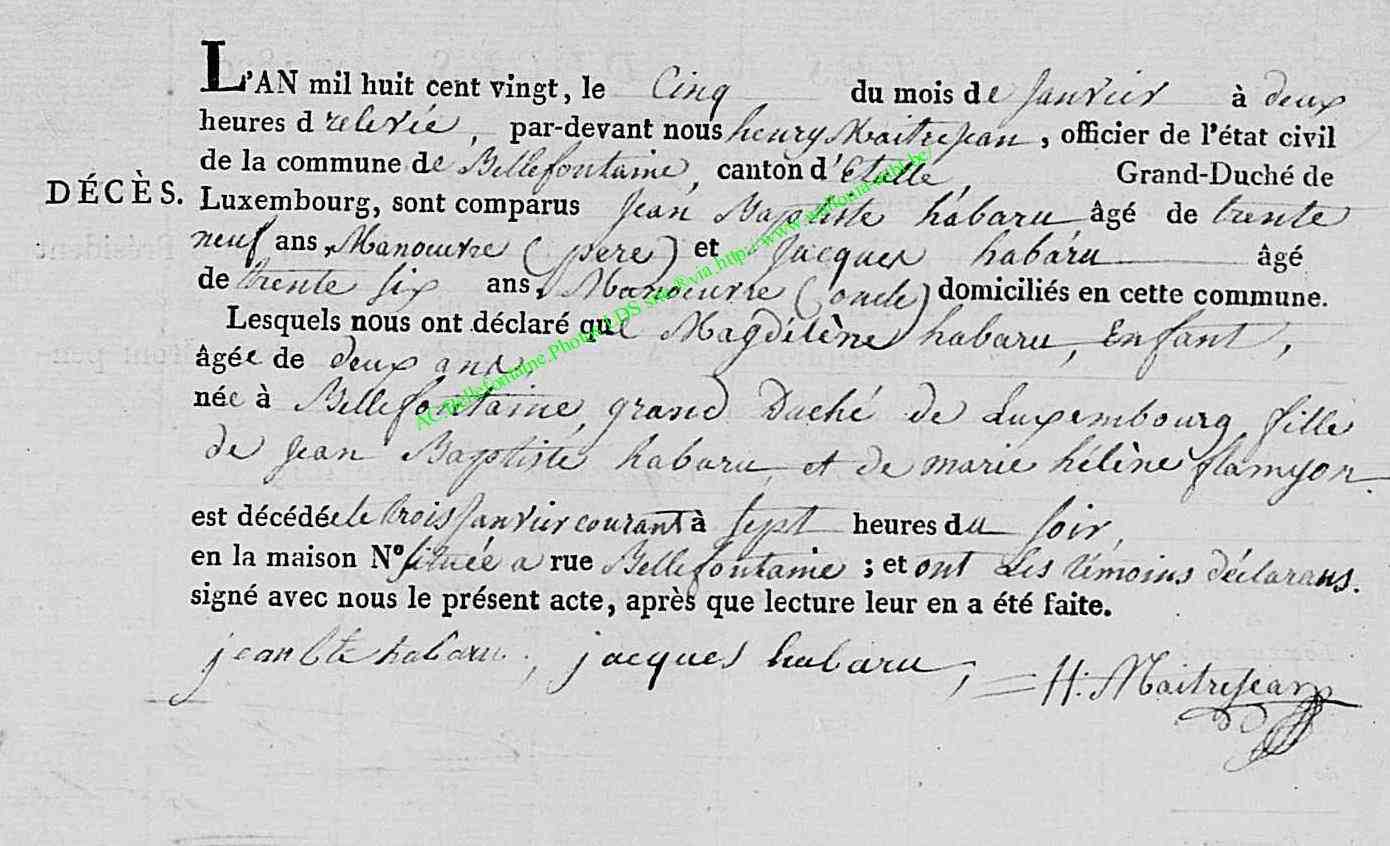 L'AN mil huit cent vingt, le Cinq du mois de Janvier à deux
heures d relevée, par-devant nous henry Maitrejean, officier de l'état civil
de la commune de Bellefontaine, canton d'étalle, Grand-Duché de
DÉCÈS. Luxembourg, sont comparus Jean Baptiste habaru âgé de trente
neuf ans, Manoeuvre (pere) et Jacques habaru âgé
de trente six ans, Manoeuvre (oncle) domiciliés en cette commune.
Lesquels nous ont déclaré que Magdelène habaru, Enfant,
âgée de deux ans,
née à Bellefontaine, grand Duché de Luxembourg, fille
de Jean Baptiste habaru, et de marie hélène flamyon.
est décédée le trois Janvier courant à Sept heures du Soir,
en la maison N° située a rue Bellefontaine ; et ont Les témoins déclarans.
signé avec nous le présent acte, après que lecture leur en a été faite.
jean bte habaru, jacques habaru, H. Maitrejean
AC Bellefontaine. Photo LDS site via http://www